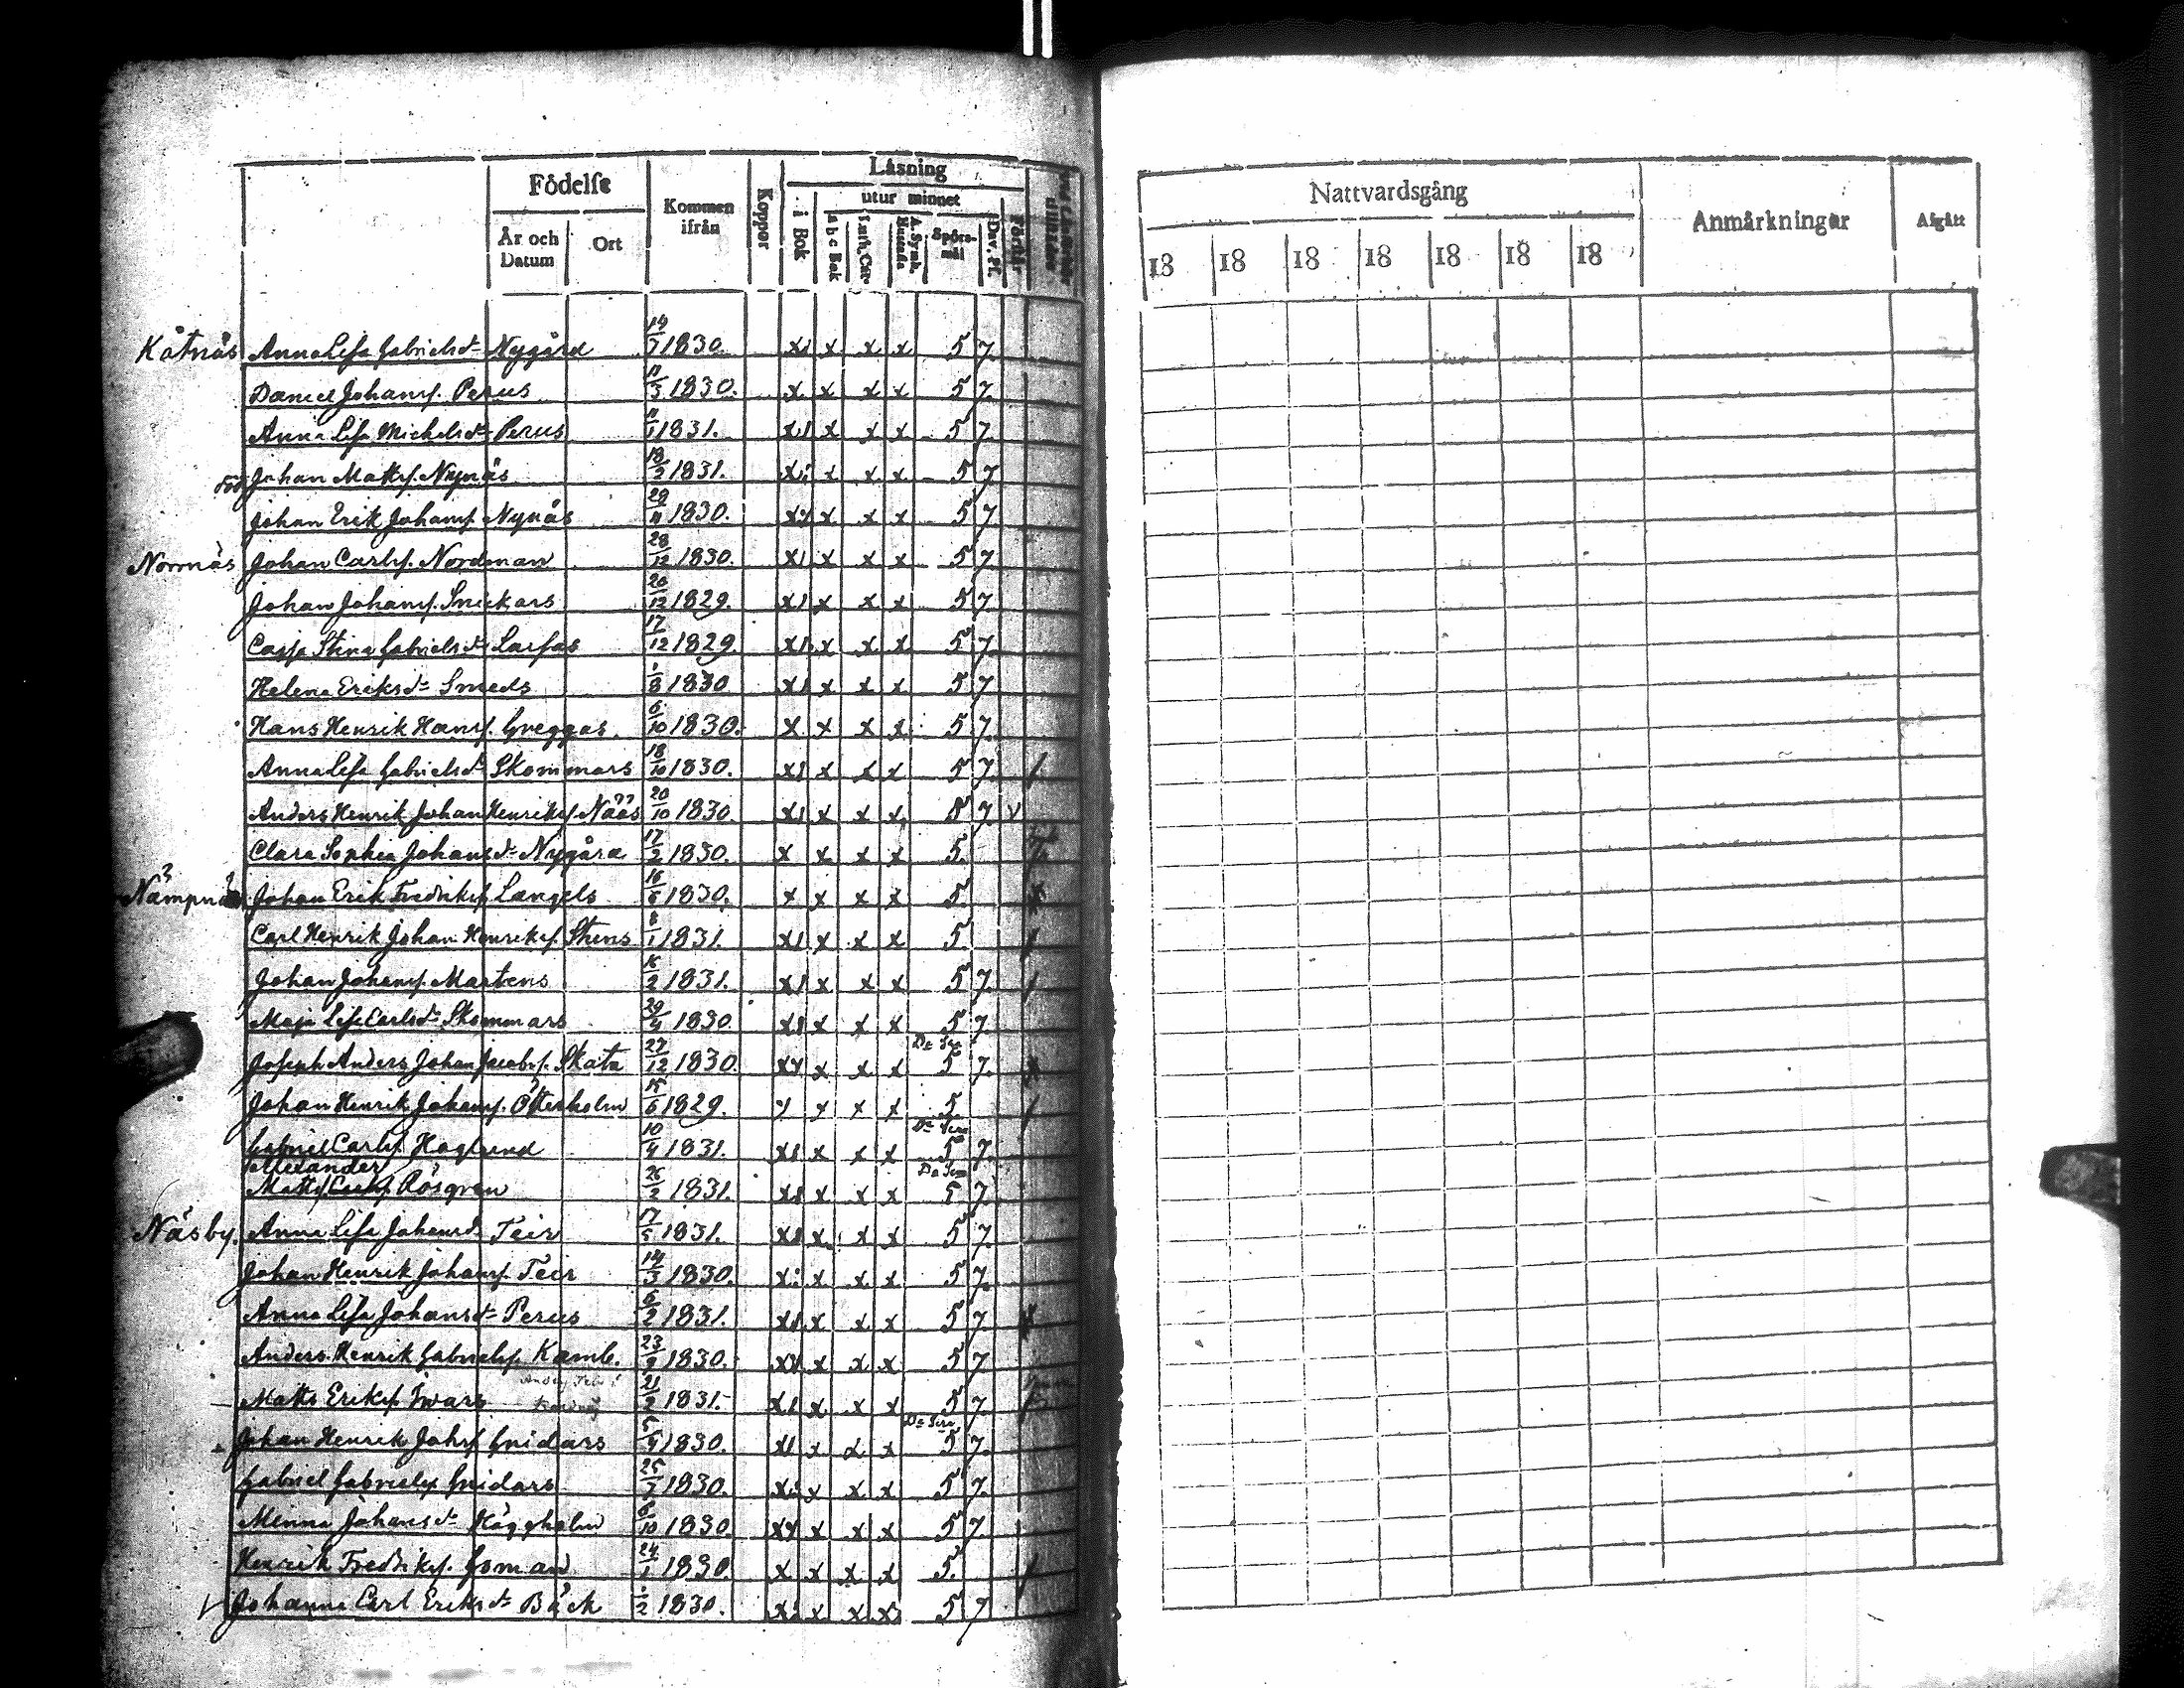 Födelse
Kommen ifrån
Koppor
Läsning
utur minnet
År och Datum
Ort
i Bok
a b c Bok
Luth. Cat.
A. Symb. Hustafla
Spörsmål
Dav. Ps.
Förstår
Nattvardsgång
Anmärkningar
Afgått
18 18 18 18 18 18 18
Kåtnäs Anna Lisa Gabrielsd. Nygård 14/7 1830. x x x x 5 7
Daniel Johans. Perus 11/3 1830. x x x x 5 7.
Anna Lisa Michelsd. Perus 11/1 1831. x x x x 5 7
död Johan Matts. Nynäs 18/2 1831. x x x x 5 7
Johan Erik Johans. Nynäs 29/11 1830. x x x x 5 7
Norrnäs Johan Carls. Nordman 28/12 1830. x x x x 5 7
Johan Johans. Snickars 20/12 1829. x x x x 5 7
Cajsa Stina Gabrielsd. Larsas 17/12 1829. x x x x 5 7.
Helena Eriksd. Smeds 1/8 1830 x x x x 5 7
Hans Henrik Hans. Greggas 6/10 1830. x x x x 5 7.
Anna Lisa Gabrielsd. Skommars 18/10 1830. x x x x 5 7.
Anders Henrik Johan Henriks. Nääs 20/10 1830 x x x x 5 7. v
Clara Sophia Johansd. Nygård 17/2 1830. x x x x 5.
Nämpnäs Johan Erik Fredriks. Langels 16/6 1830. x x x x 5
Carl Henrik Johan Henriks. Stens 8/1 1831. x x x x 5
Johan Johans. Martens 16/2 1831. x x x x 5 7.
Maja Lisa Carlsd. Skommars 29/4 1830 x x x x 5 7.
Joseph Anders Johan Jacobs. Skata 27/12 1830 x x x x 5 7.
Johan Henrik Johans. Österholm 15/6 1829. x x x x 5.
Gabriel Carls. Haglund 10/4 1831. x x x x 5 7.
Alexander
Matts Carls. Rosgren 26/2 1831. x x x x 5 7.
Näsby. Anna Lisa Johansd. Teir 17/5 1831. x x x x 5 7.
Johan Henrik Johans. Teir 14/3 1830. x x x x 5 7.
Anna Lisa Johansd. Perus 6/2 1831. x x x x 5 7.
Anders Henrik Gabriels. Kamb. 23/9 1830. x x x x 5 7
Matts Eriks. Iwars 21/2 1831. x x x x 5 7.
Johan Henrik Johs. Gnidars 5/4 1830. x x x x 5 7.
Gabriel Gabriels. Gnidars 25/7 1830. x x x x 5 7.
Minna Johansd. Häggholm 8/10 1830. x x x x 5 7
Henrik Fredriks. Goman 24/1 1830. x x x x 5.
Johanna Carl Eriksd. Bäck 1/2 1830. x x x x 5 7